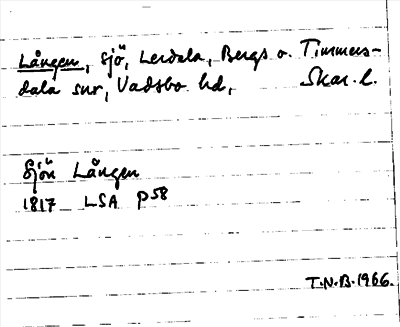 Lången, sjö, Lerdala, Bergs o. Timmers-
dala snr, Vadsbo hd, Skar. l.
Sjön Lången
1817 LSA P58
T.N.B. 1966.